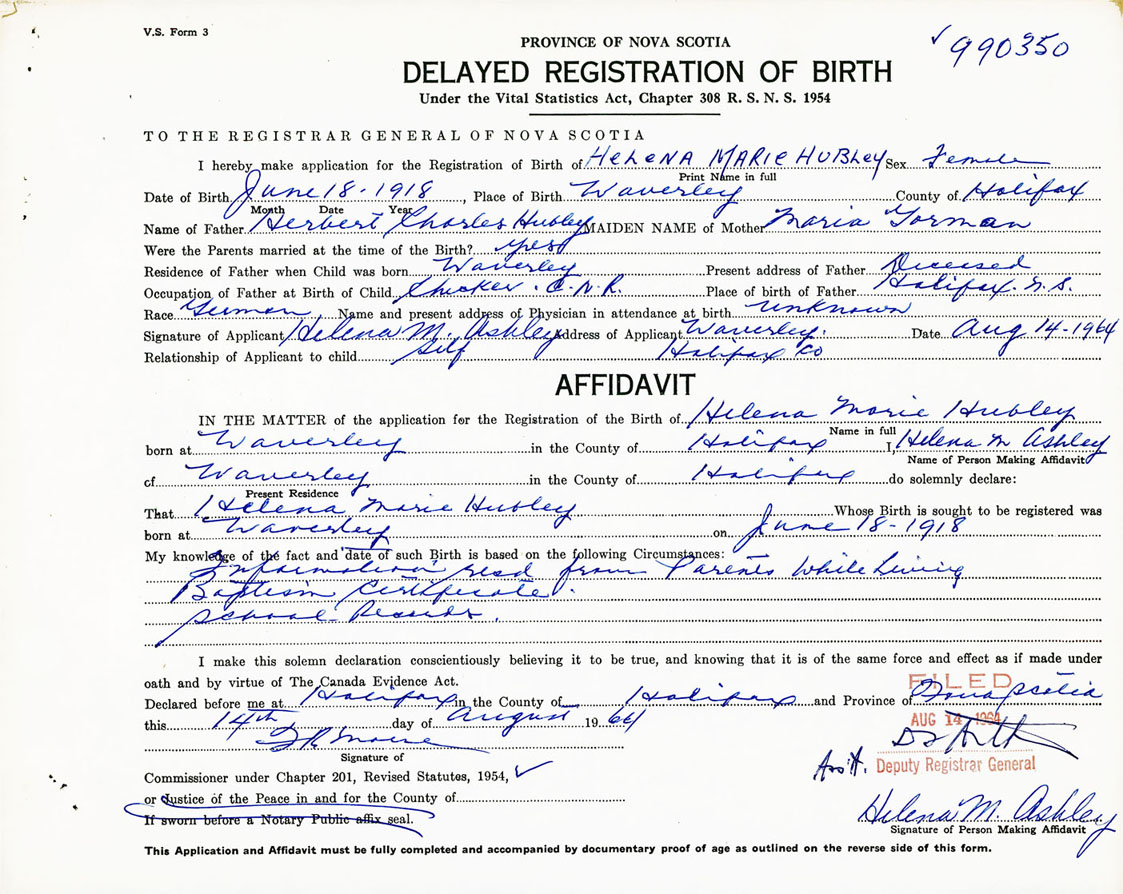 V.S. Form 3
990350
PROVINCE OF NOVA SCOTIA
DELAYED REGISTRATION OF BIRTH
Under the Vital Statistics Act, Chapter 308 R. S. N. S. 1954
TO THE REGISTRAR GENERAL OF NOVA SCOTIA
I hereby make application for the Registration of Birth of HELENA MARIE HUBLEY Sex Female
Print Name in full
Date of Birth June 18 - 1918, Place of Birth Waverley County of Halifax
Month Date Year
Name of Father Herbert Charles Hubley MAIDEN NAME of Mother Maria Gorman
Were the Parents married at the time of the Birth? yes
Residence of Father when Child was born Waverley Present address of Father Deceased
Occupation of Father at Birth of Child Checker. C.N.R. Place of birth of Father Halifax. N.S.
Race German Name and present address of Physician in attendance at birth unknown
Signature of Applicant Helena M. Ashley Address of Applicant Waverley. Date Aug 14 - 1964
Relationship of Applicant to child Self Halifax Co
AFFIDAVIT
IN THE MATTER of the application for the Registration of the Birth of Helena Marie Hubley
Name in full
born at Waverley in the County of Halifax I, Helena M Ashley
Name of Person Making Affidavit
of Waverley in the County of Halifax do solemnly declare:
Present Residence
That Helena Marie Hubley Whose Birth is sought to be registered was
born at Waverley on June 18 - 1918
My knowledge of the fact and date of such Birth is based on the following Circumstances:
Information recd from Parents While Living
Baptism Certificate.
School Records.
I make this solemn declaration conscientiously believing it to be true, and knowing that it is of the same force and effect as if made under
oath and by virtue of The Canada Evidence Act.
FILED
Declared before me at Halifax in the County of Halifax and Province of Nova Scotia
this 14th day of August 19 64
AUG 14 1964
Signature of
Asst. Deputy Registrar General
Commissioner under Chapter 201, Revised Statutes, 1954,
or Justice of the Peace in and for the County of
If sworn before a Notary Public affix seal.
Helena M. Ashley
Signature of Person Making Affidavit
This Application and Affidavit must be fully completed and accompanied by documentary proof of age as outlined on the reverse side of this form.